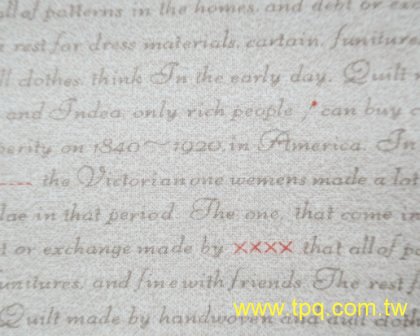 all of patterns in the homes, and debt or ex
rest for dress materials, cartain, funiture
ll clothes, think In the early day. Quilt
and Indea, only rich people, can buy
perity on 1840~1920, in America. In
the Victorian one wemens made a lot
lae in that period. The one, that come in
t or exchange made by xxxx that all of pa
funitures, and fine with friends. The rest f
Quilt made by handwoven and
www.tpq.com.tw